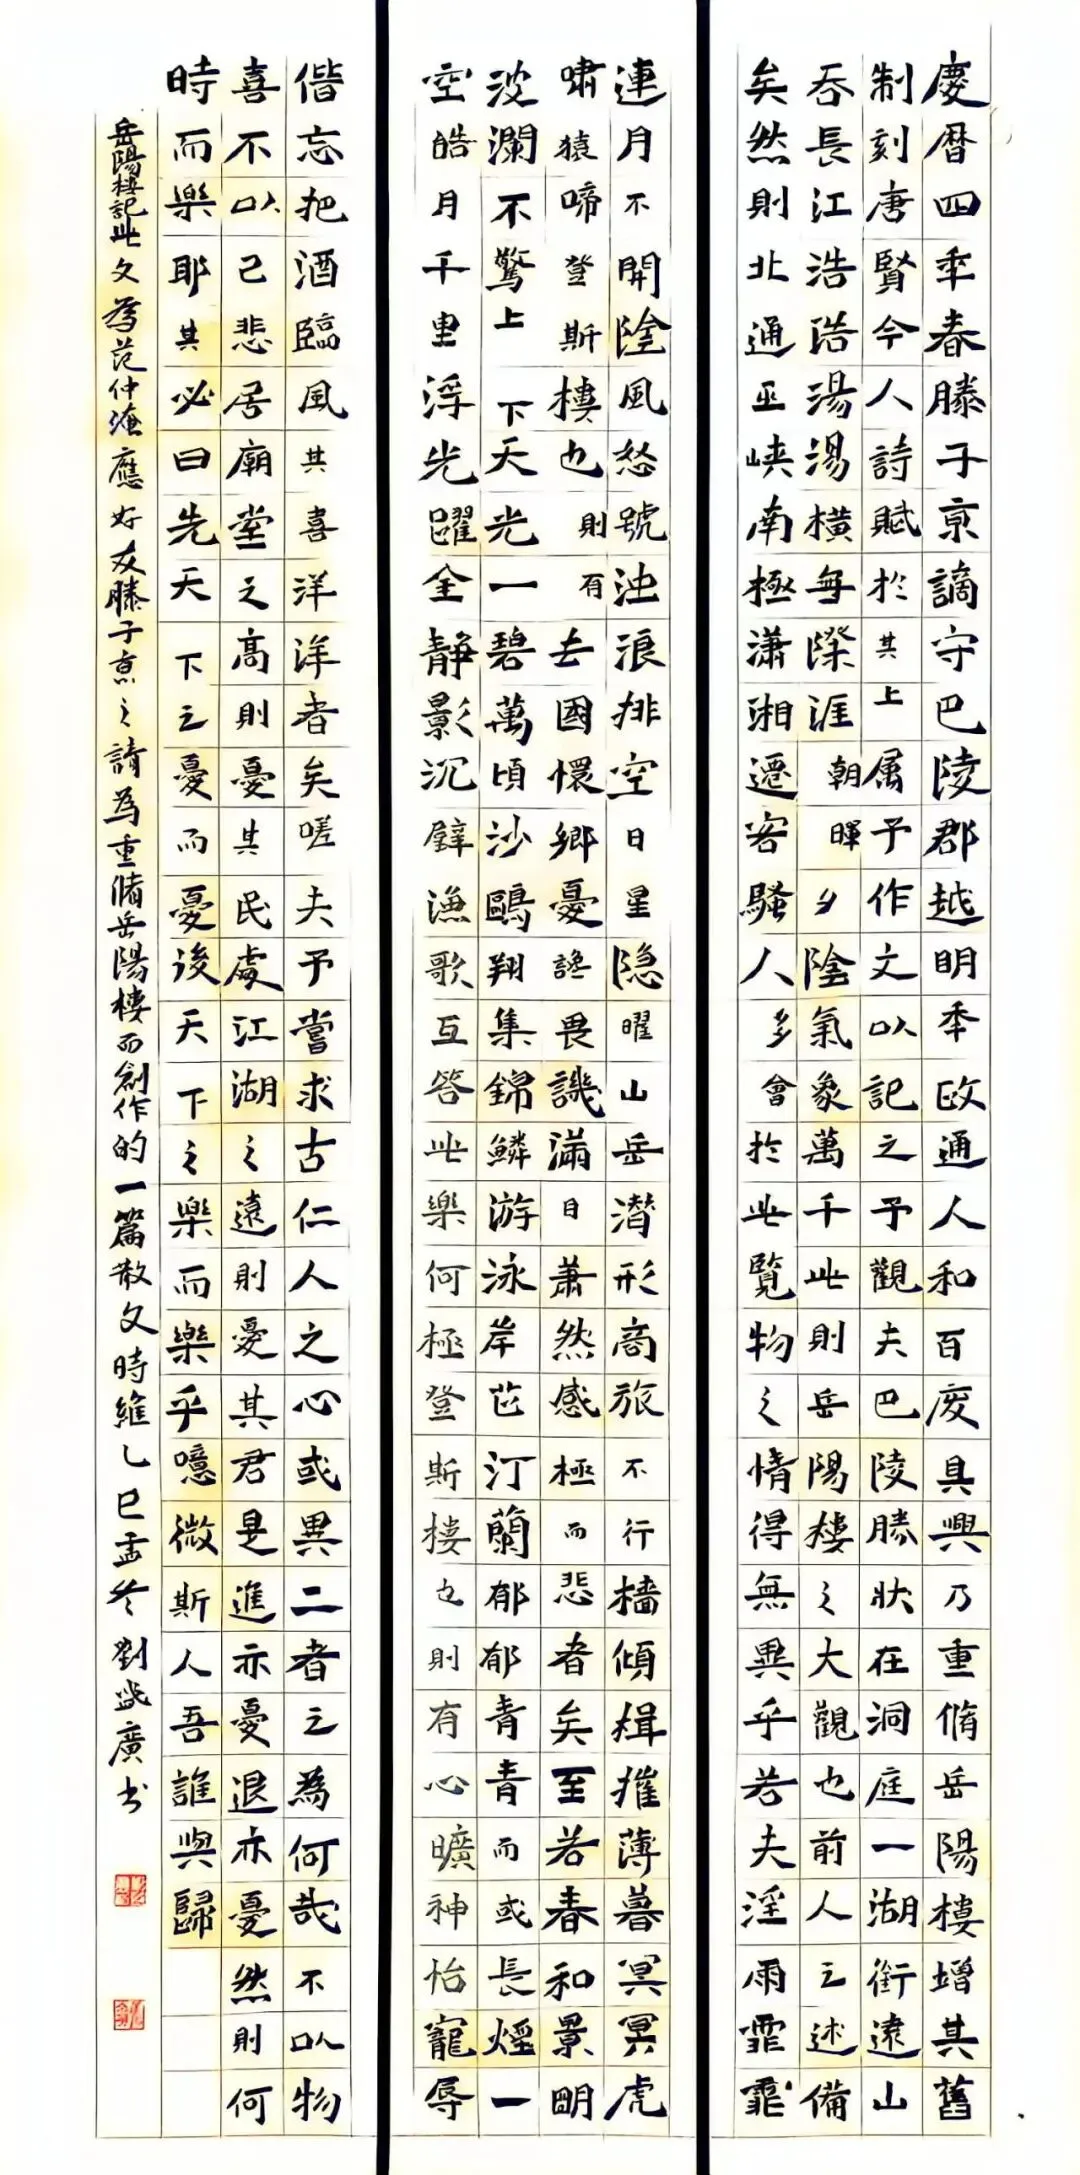 慶暦四年春滕子京謫守巴陵郡越明年政通人和百廢具興乃重脩岳陽樓增其舊
制刻唐賢今人詩賦於其上属予作文以記之予觀夫巴陵勝狀在洞庭一湖銜遠山
吞長江浩浩湯湯橫無際涯朝暉夕陰氣象萬千此則岳陽樓之大觀也前人之述備
矣然則北通巫峽南極瀟湘遷客騷人多會於此覽物之情得無異乎若夫淫雨霏霏
連月不開陰風怒號浊浪排空日星隐曜山岳潛形商旅不行檣傾楫摧薄暮冥冥虎
嘯猿啼登斯樓也則有去國懷鄉憂讒畏譏滿目蕭然感極而悲者矣至若春和景明
波瀾不驚上下天光一碧萬頃沙鷗翔集錦鱗游泳岸芷汀蘭郁郁青青而或長煙一
空皓月千里浮光躍金靜影沉璧漁歌互答此樂何極登斯樓也則有心曠神怡寵辱
偕忘把酒臨風其喜洋洋者矣嗟夫予嘗求古仁人之心或異二者之為何哉不以物
喜不以己悲居廟堂之高則憂其民處江湖之遠則憂其君是進亦憂退亦憂然則何
時而樂耶其必曰先天下之憂而憂後天下之樂而樂乎噫微斯人吾誰與歸
岳陽樓記此文為范仲淹應好友滕子京之請為重脩岳陽樓而創作的一篇散文時維乙巳孟冬劉廣书